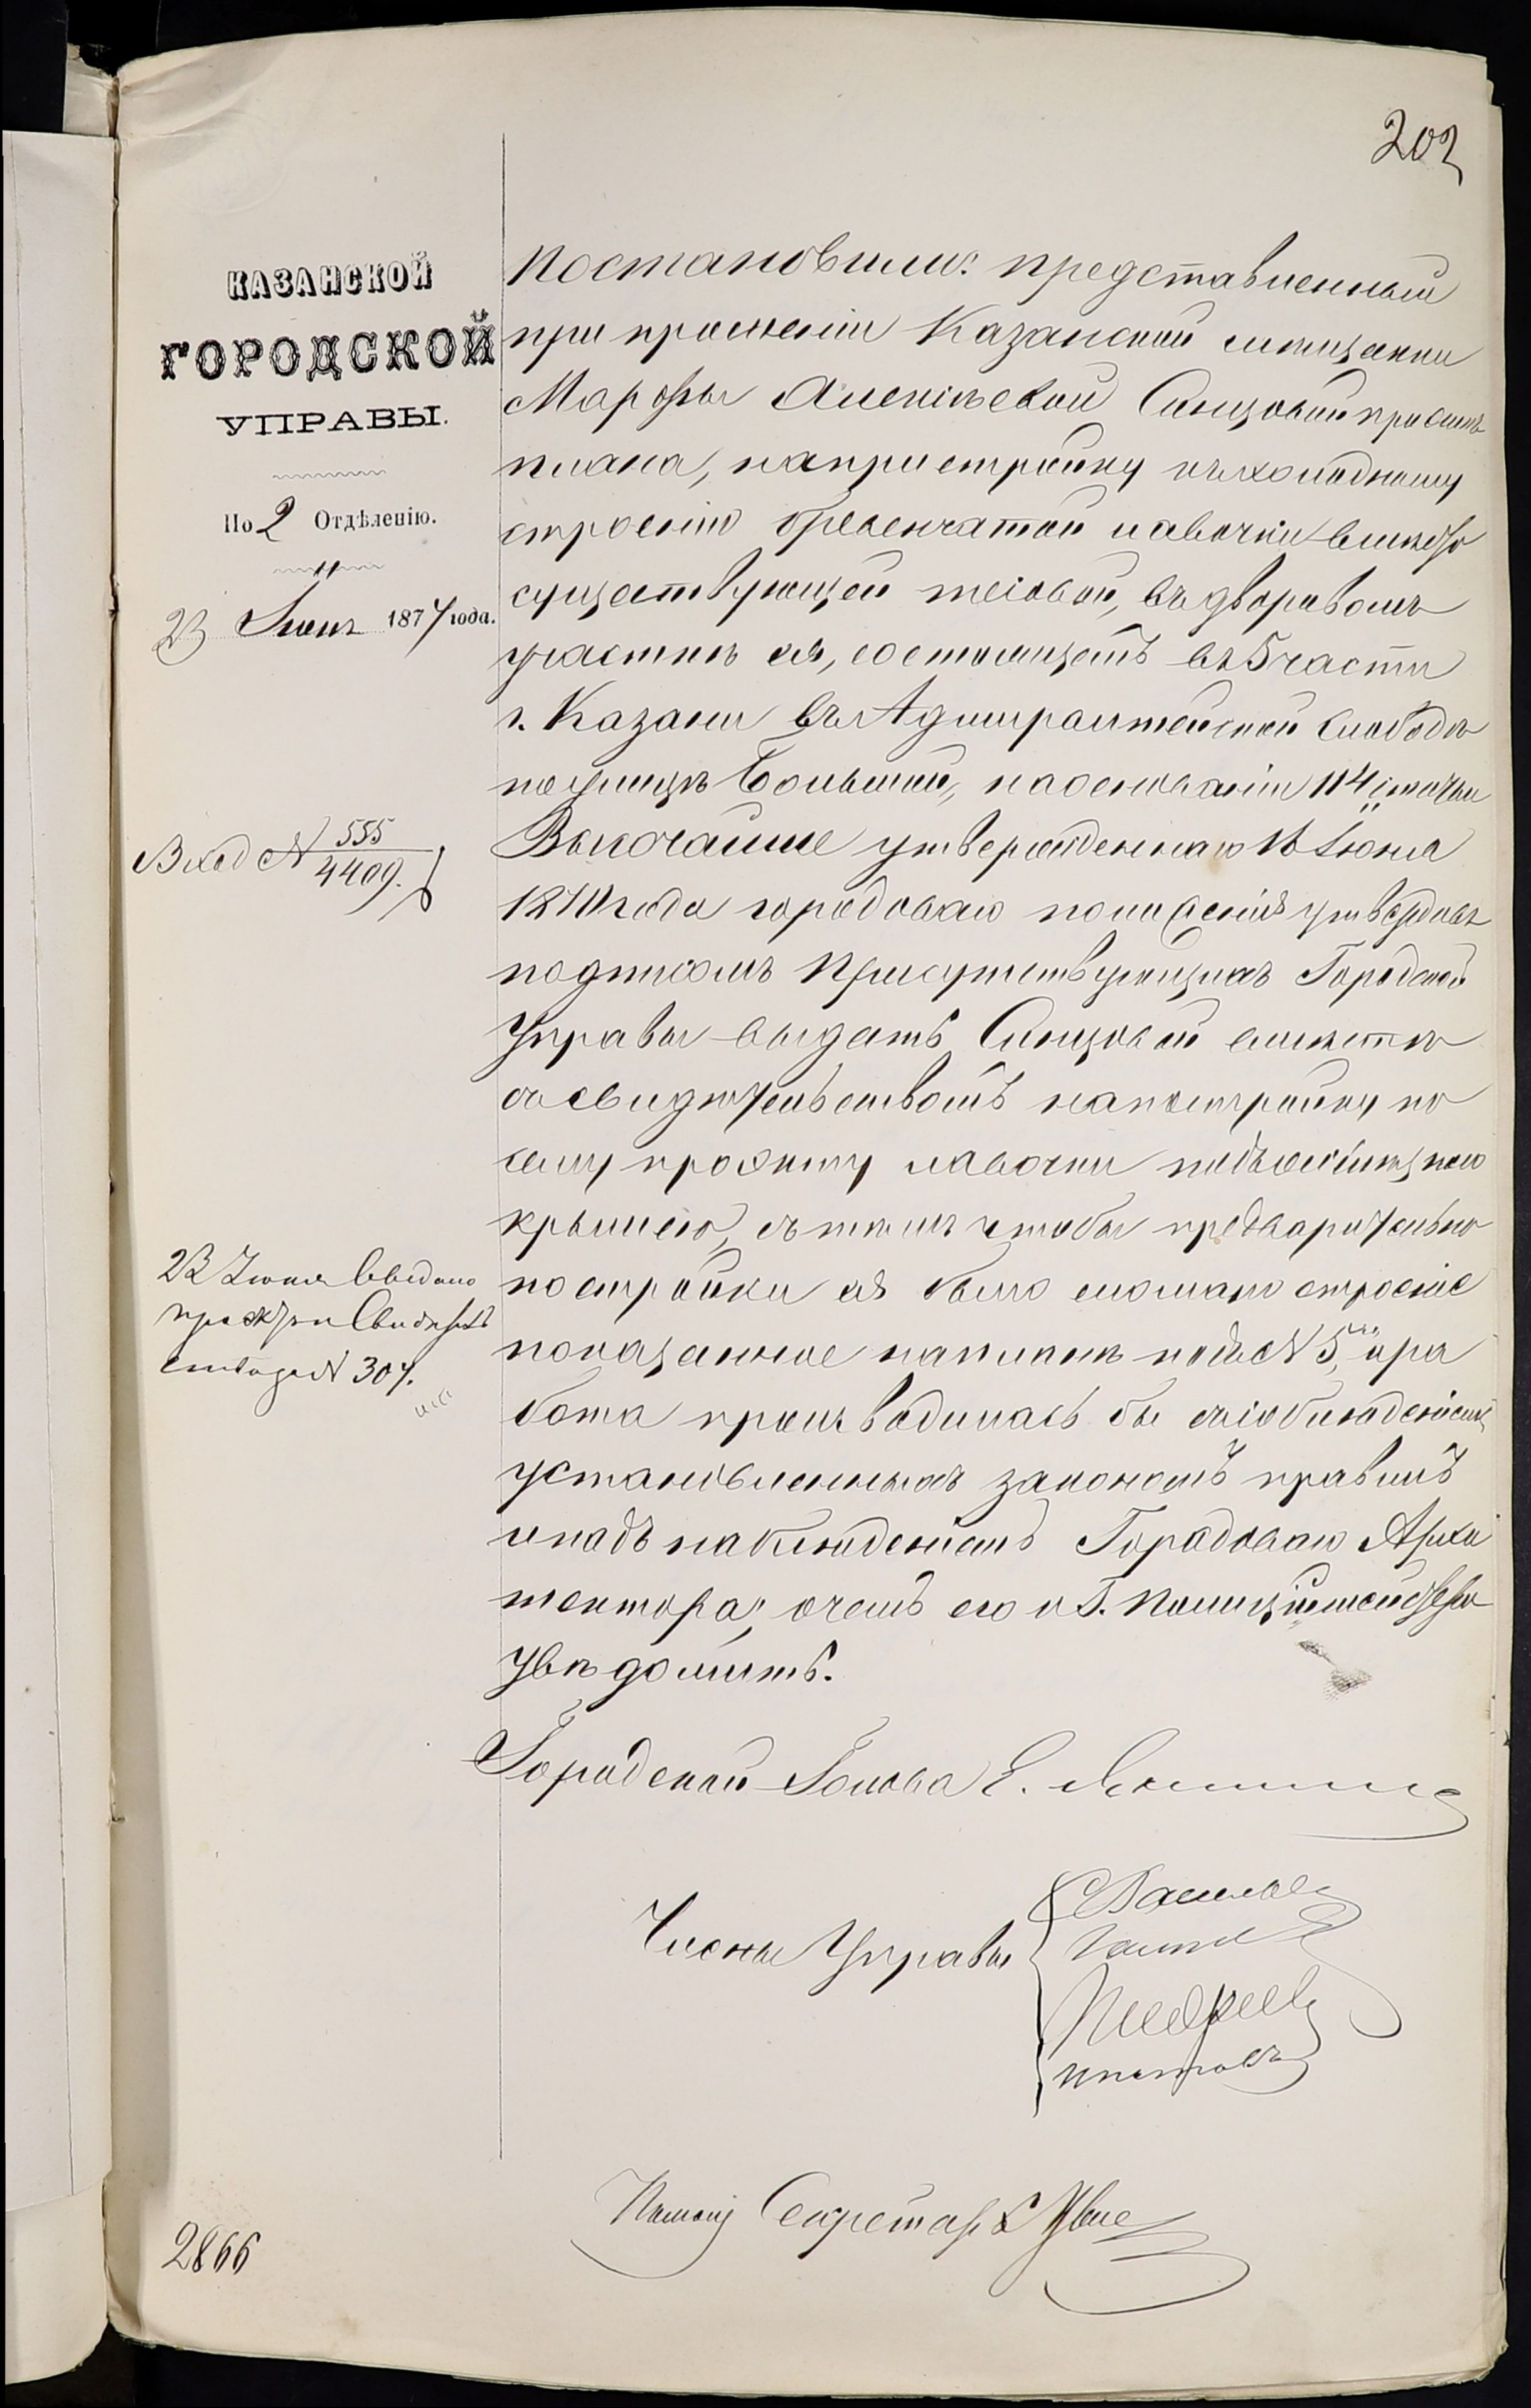 202
КАЗАНСКОЙ
ГОРОДСКОЙ
УПРАВЫ.
По 2 Отдѣленію.
23 Іюня 1877 года.
Вход № 555
4409.
23 Іюня Выдано
проэктъ и Свидѣтель
ство за № 307.
2866
Постановили: представленный
при прошеніи Казанской мѣщанки
Марфы Алексѣевой Синцовой проэктъ
плана, на пристройку къ холодному
строенію бревенчатой лавочки вмѣсто
существующей тесовой, въ дворовомъ
участкѣ ея, состоящемъ въ 5 части
г. Казани въ Адмиралтейской слободѣ
по улицѣ Большой, на основаніи 114 статьи
Высочайше утвержденнаго 16 Іюня
1870 года городоваго положенія утвердивъ
подписомъ Присутствующихъ Городской
Управы выдать Синцовой вмѣстѣ
со свидѣтельствомъ на постройку по
сему проэкту лавочки подъ
крышею, съ тѣмъ чтобы предварительно
постройки ея было сломано строеніе
показанное на планѣ подъ № 5, и ра
бота производилась бы съ соблюденіемъ
установленныхъ закономъ правилъ
и подъ наблюденіемъ Городоваго Архи
тектора; о чемъ его и Г. Полиціймейстера
увѣдомить.
Городской Голова Е.
Члены Управы
Помощ Секретаря